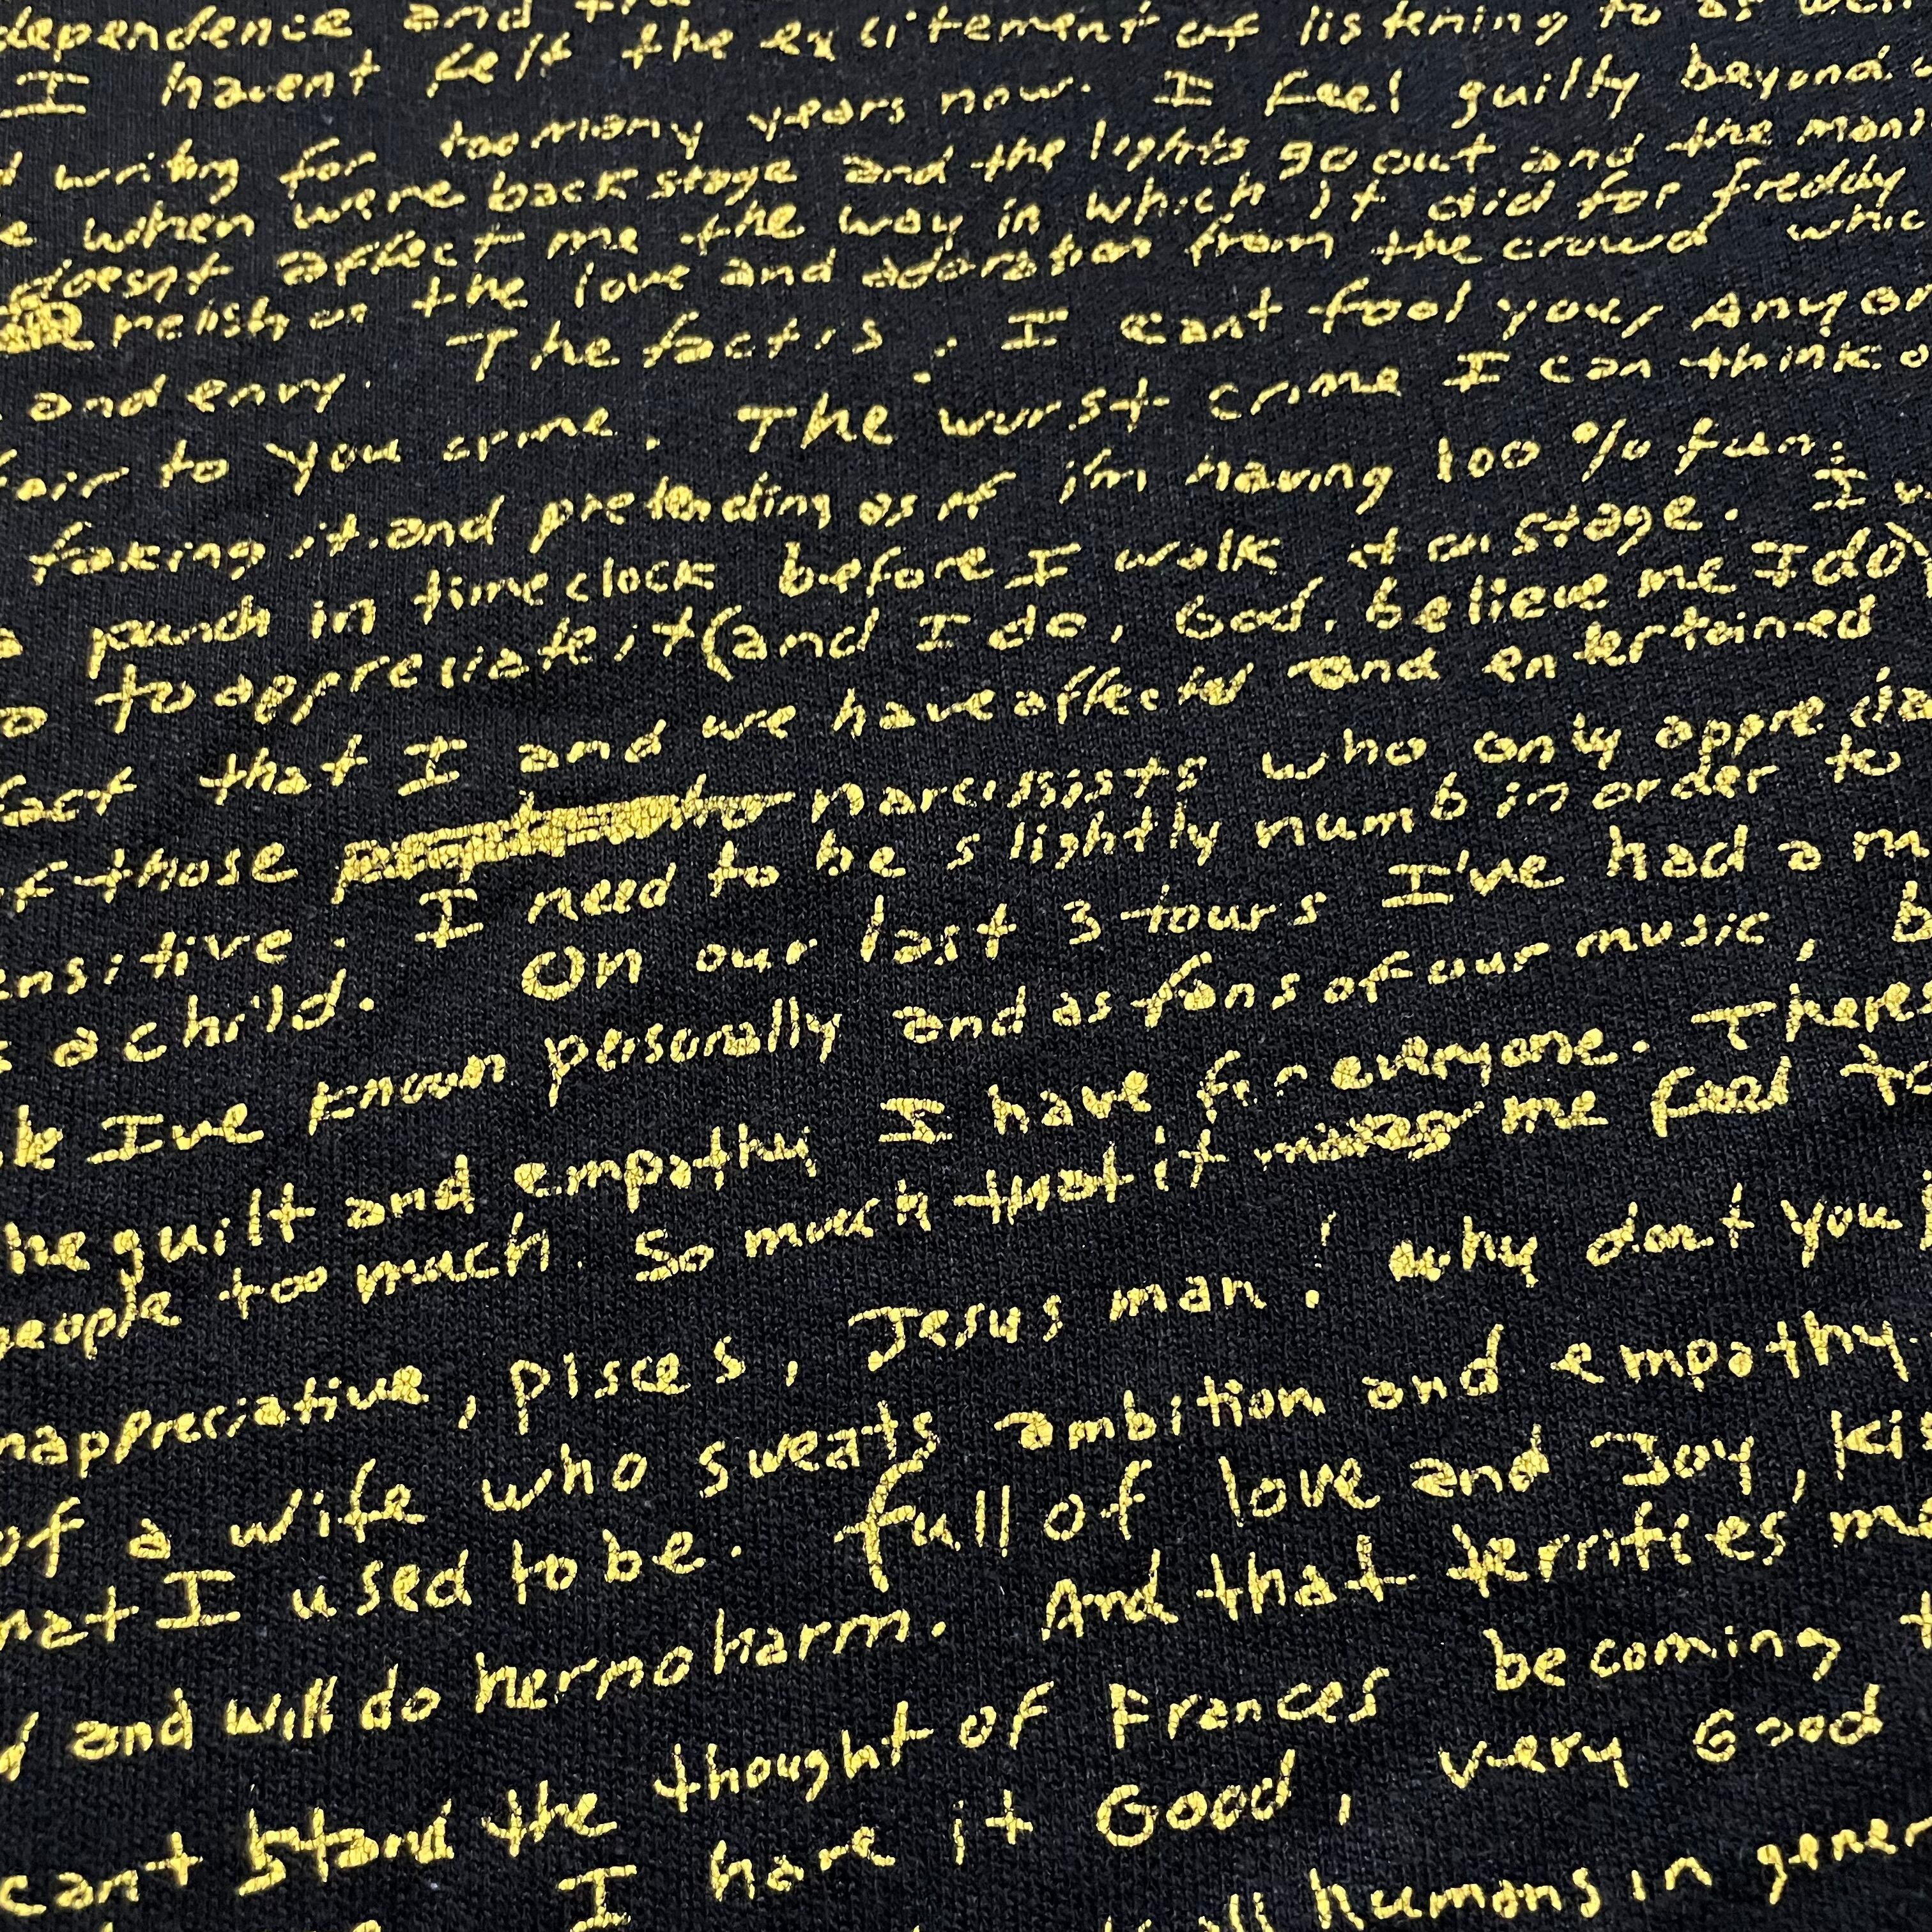 dependence and
I havent felt the excitement of listening to as well
writing for too many years now. I feel guilty beyond
when were backstage and the lights go out and the mani
doesnt affect me the way in which it did for freddy
relish in the love and adoration from the crowd whic
and envy. The fact is, I cant fool you, Anyon
fair to you crime. The wurst crime I can think o
faking it and pretending as if i'm having 100 % fun.
a punch in time clock before I walk out on stage. I
to appreciate it (and I do, God, believe me I do)
fact that I and we have affected and entertained
of those narcissists who only apprecia
ensitive. I need to be slightly numb in order to
s a child. On our last 3 tours I've had a m
I've known personally and as fans of our music, b
he guilt and empathy I have for everyone. Theres
people too much. So much that it makes me feel to
nappreciative, pisces, Jesus man! why dont you
of a wife who sweats ambition and empathy.
hat I used to be. full of love and Joy, kis
d and will do her no harm. And that terrifies me
cant stand the thought of Frances becoming t
I have it Good, very Good
all humans in gener